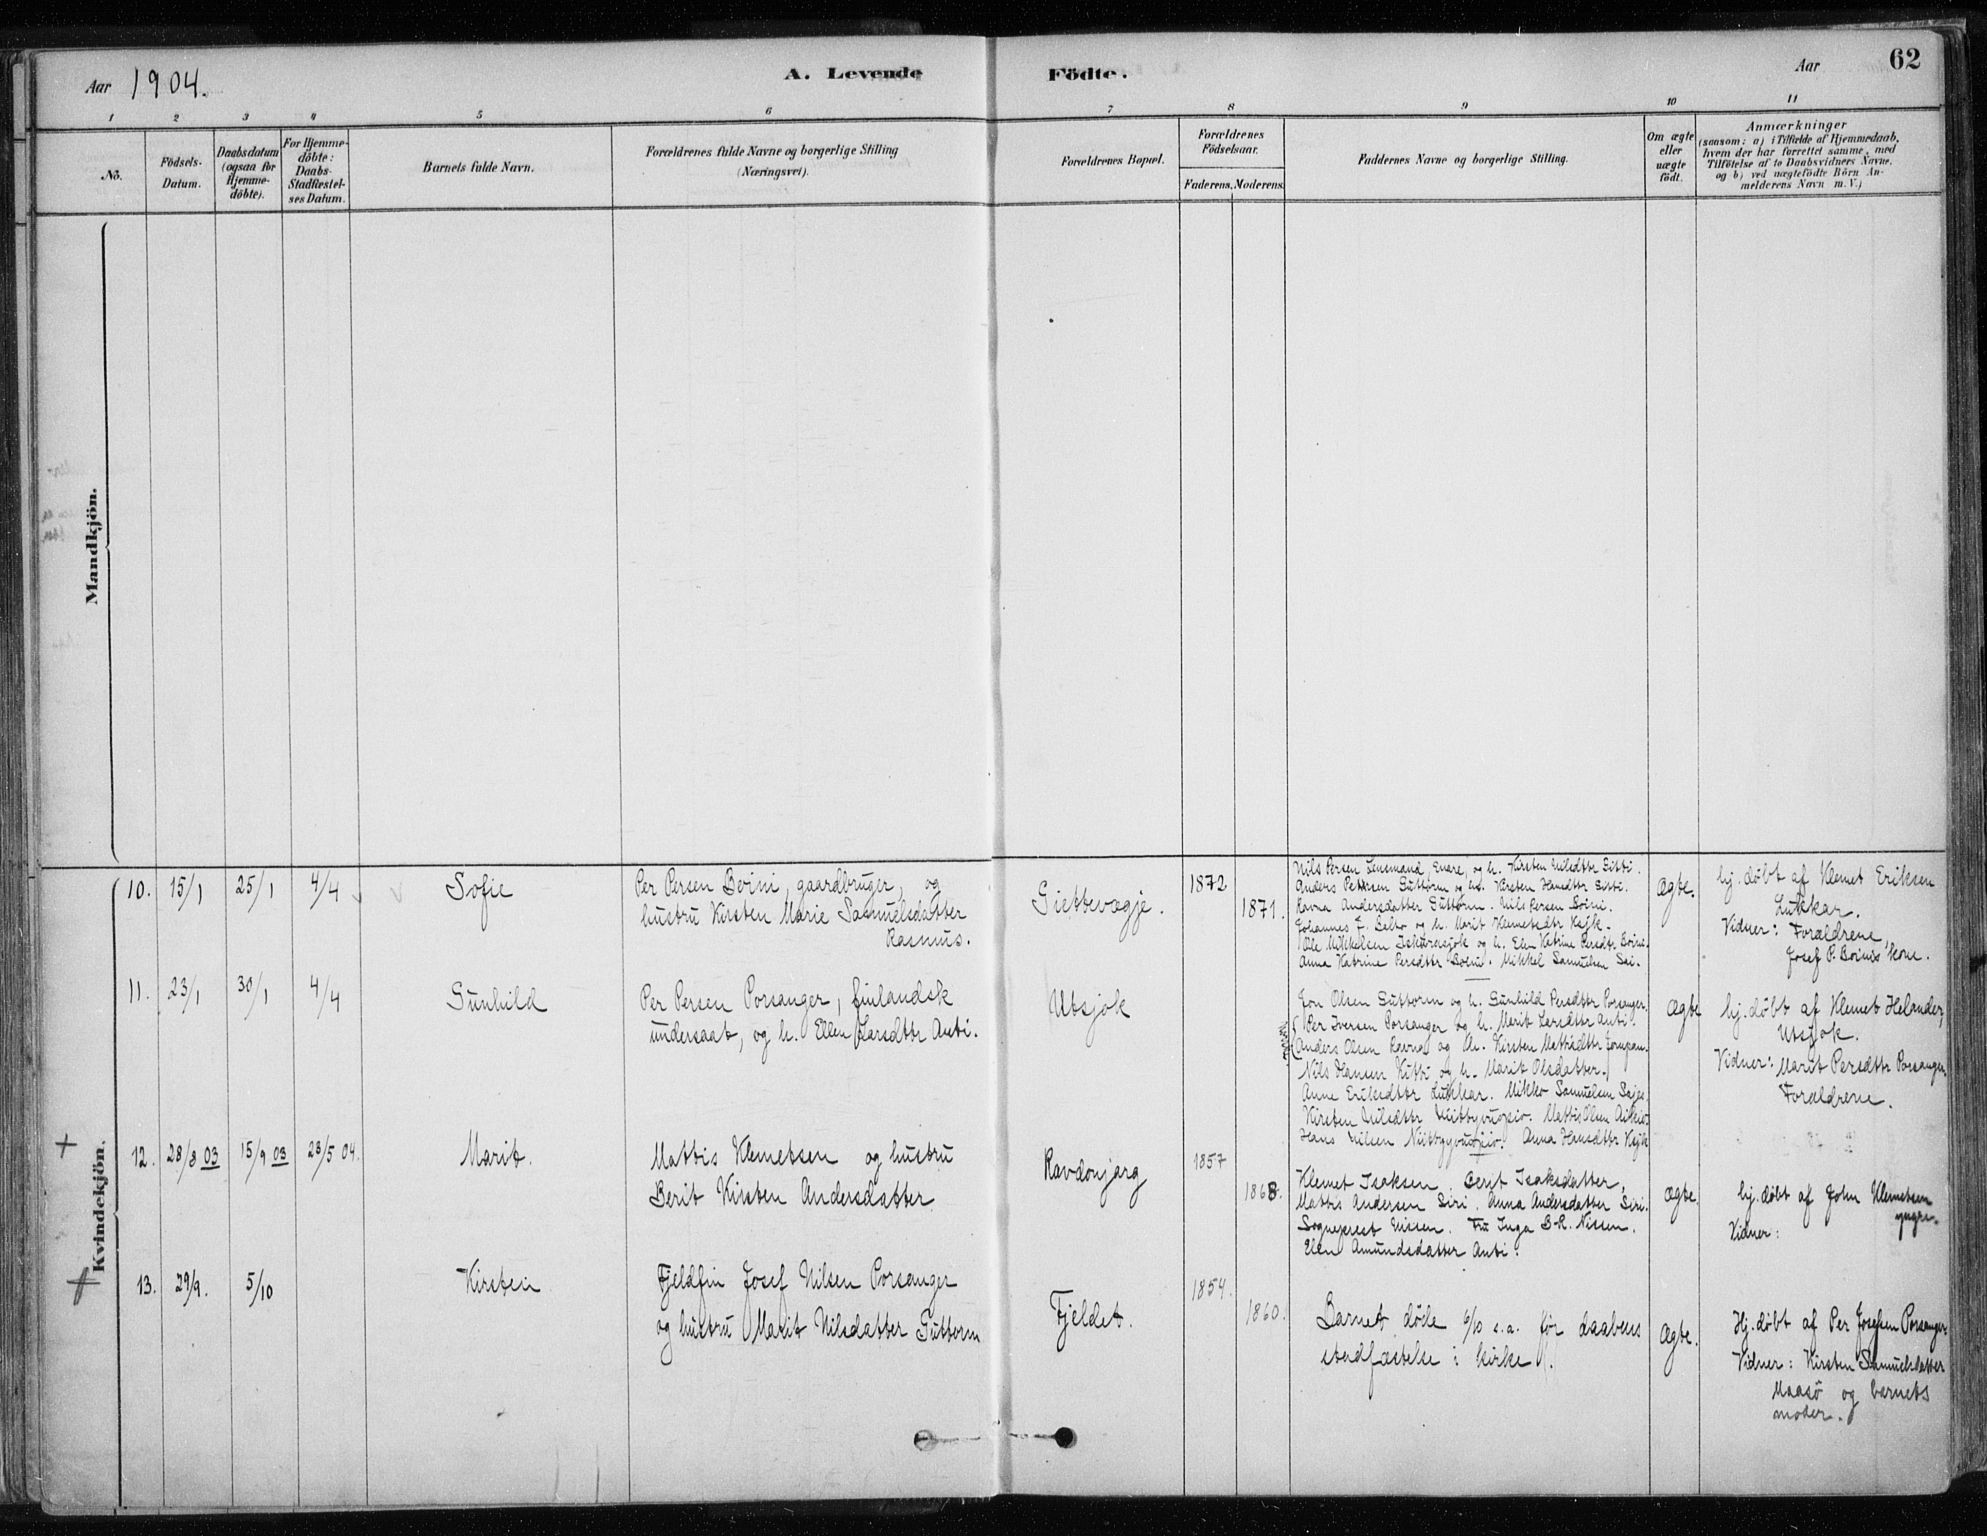 62
Aar 1904.
A. Levende Födte.
Aar
1 2 3 4 5 6 7 8 9 10 11
No.
Födsels-
Datum.
Daabsdatum
(ogsaa for
Hjemme-
döbte).
For Hjemme-
döbte:
Daabs-
Stadfæstel-
ses Datum.
Barnets fulde Navn.
Forældrenes fulde Navne og borgerlige Stilling
(Næringsvei).
Forældrenes Bopæl.
Forældrenes
Födselsaar.
Faderens. Moderens.
Faddernes Navne og borgerlige Stilling.
Om ægte
eller
uægte
födt.
Anmærkninger
(saasom: a) i Tilfælde af Hjemmedaab,
hvem der har forrettet samme, med
Tilföielse af to Daabsvidners Navne,
og b) ved uægtefödte Börn An-
melderens Navn m. V.)
Mandkjön.
Kvindekjön.
10. 15/1 25/1 4/4
Sofie
Per Persen Boini, gaardbruger, og
hustru Kirsten Marie Samuelsdatter
Rasmus.
Giettevægje.
1872
1871.
Nils Persen Lensmand, Enare, og h. Kirsten Nilsdttr Sitti.
Anders Pettersen Guttorm og h. Kirsten Hansdttr Sitti.
Ravna Andersdatter Guttorm. Nils Persen Boini.
Johannes J. Balto og h. Marit Klemetsdtr Kejk.
Ole Mikkelsen Iskurasjok og h. Elen Katrine Persdtr. Boine.
Anna Katrine Persdttr Boini. Mikkel Samuelsen Sai.
Ægte.
hj. døbt af Klemet Eriksen
Lukkar.
Vidner: Forældrene,
Josef P. Boinis kone.
11. 23/1 30/1 4/4
Gunhild
Per Persen Porsanger, finlandsk
undersaat, og h. Ellen Larsdttr Anti.
Utsjok
Jon Olsen Guttorm og h. Gunhild Persdttr Porsanger.
Per Iversen Porsanger og h. Marit Larsdttr Anti.
Anders Olsen Ravna og h. Kirsten Mathisdttr Jompan.
Nils Hansen Kitti og h. Marit Olsdatter.
Anne Eriksdttr Lukkar. Mikko Samuelsen Sajes.
Kirsten Nilsdttr Niitbyvuopio. Mattis Olsen Aikio
Hans Nilsen Niitbyvuopio. Anna Hansdttr Kejk
Ægte
hj. døbt af Klemet Helander,
Utsjok.
Vidner: Marit Persdttr Porsanger
Forældrene.
12. 28/8 03 15/9 03 28/5 04.
Marit.
Mattis Klemetsen og hustru
Berit Kirsten Andersdatter
Ravdonjarg
1857
1868.
Klemet Isaksen. Berit Isaksdatter,
Mattis Andersen Siri. Anna Andersdatter Siri.
Sogneprest Nissen. Fru Inga B.R. Nissen.
Elen Amundsdatter Anti.
Ægte.
hj. døbt af John Klemetsen
yngre.
Vidner:
13. 29/9. 5/10
Kirsten
Fjeldfin Josef Nilsen Porsanger
og hustru Marit Nilsdatter Guttorm
Fjeldet.
1854.
1860.
Barnet døde 6/10 s.a. før daabens
stadfæstelse i kirke.
Ægte.
Hj. døbt af Per Josefsen Porsanger
Vidner: Kirsten Samuelsdatter
Maasø og barnets
moder.